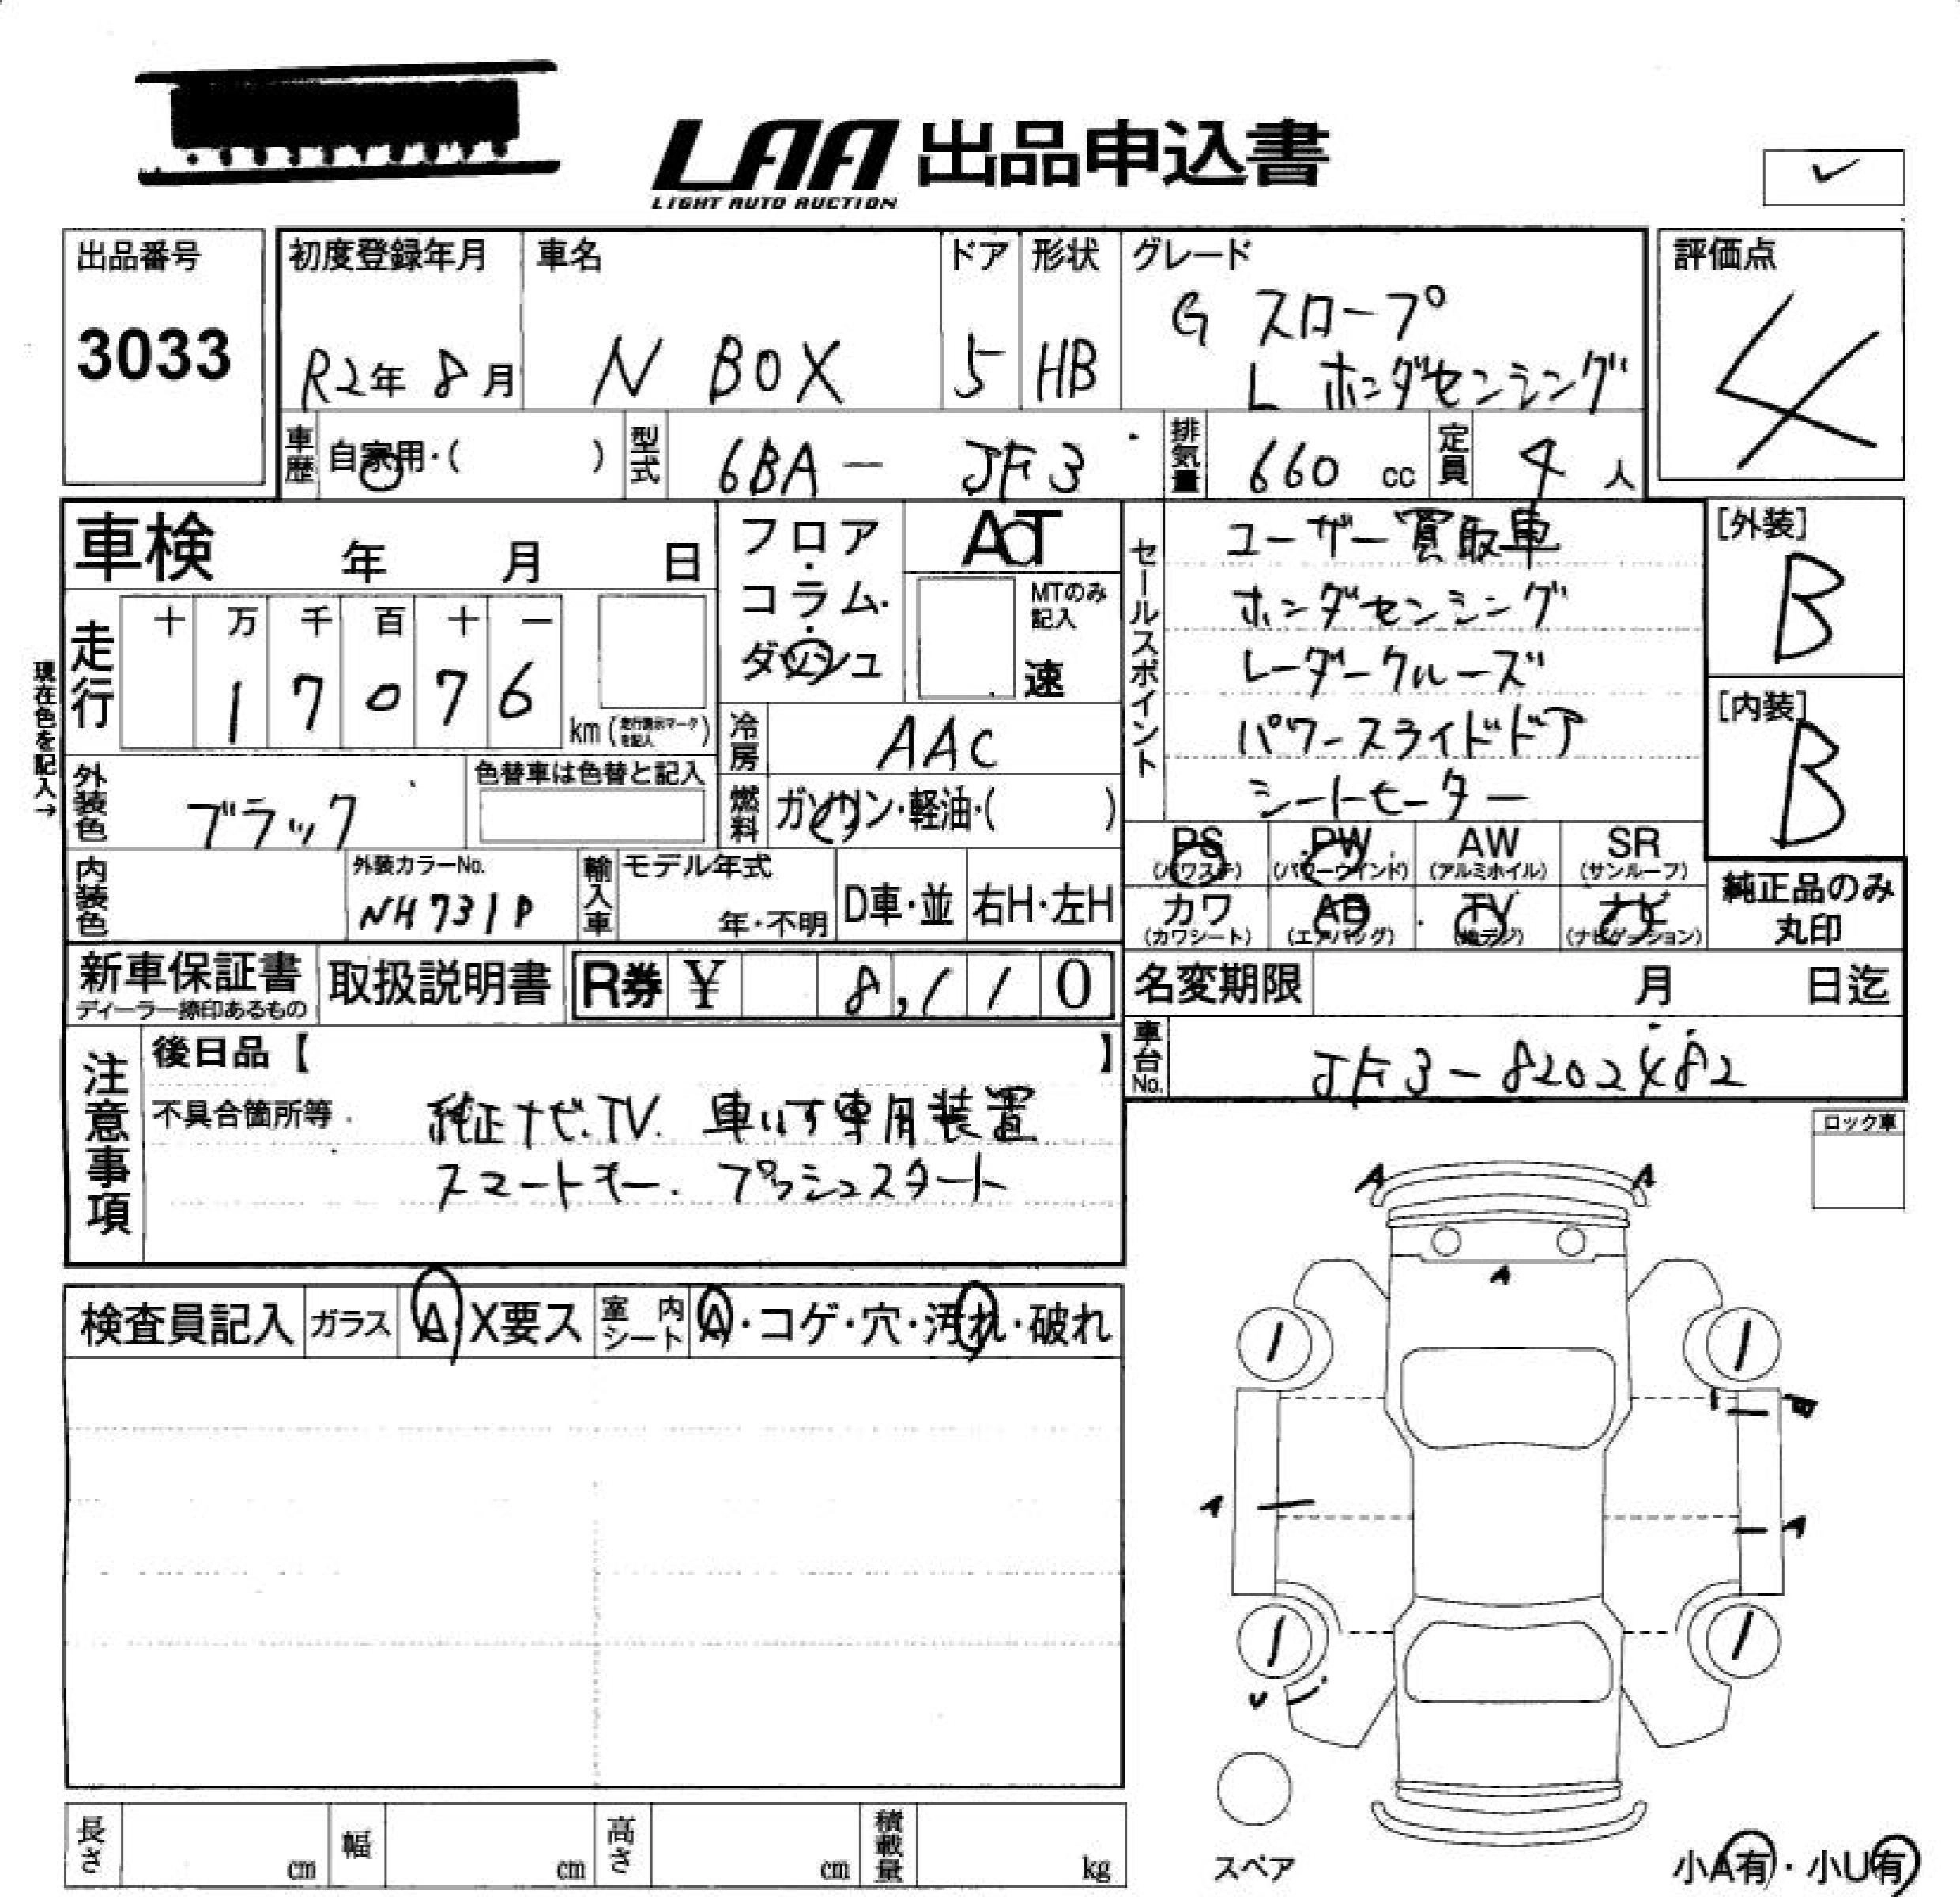 LAA 出品申込書
LIGHT AUTO AUCTION
✓
出品番号
3033
初度登録年月
R2年 8月
車名
N BOX
ドア
5
形状
HB
グレード
G スロープ
L ホンダセンシング
評価点
4
車歴 自家用・( )
型式 6BA - JF3
排気量 660 cc
定員 4 人
車検 年 月 日
フロア・コラム・ダッシュ
AT
MTのみ記入
速
走行
十 万 千 百 十 一
1 7 0 7 6
km (走行表示マークを記入)
現在色を記入→
冷房 AAC
燃料 ガソリン・軽油・( )
外装色 ブラック
色替車は色替と記入
内装色
外装カラーNo.
NH731P
輸入車
モデル年式
年・不明
D車・並
右H・左H
セールスポイント
ユーザー買取車
ホンダセンシング
レーダークルーズ
パワースライドドア
シートヒーター
[外装]
B
[内装]
B
PS (パワステ)
PW (パワーウインド)
AW (アルミホイル)
SR (サンルーフ)
カワ (カワシート)
AB (エアバッグ)
TV (地デジ)
ナビ (ナビゲーション)
純正品のみ
丸印
新車保証書
ディーラー捺印あるもの
取扱説明書
R券 ¥ 8,110
名変期限 月 日迄
車台No. JF3-8202482
注意事項
後日品【 】
不具合箇所等
純正ナビ.TV. 車いす専用装置
スマートキー. プッシュスタート
ロック車
検査員記入
ガラス A・X要ス
室内シート A・コゲ・穴・汚れ・破れ
A A
A
A
A
U
スペア
長さ cm
幅 cm
高さ cm
積載量 kg
小A有・小U有